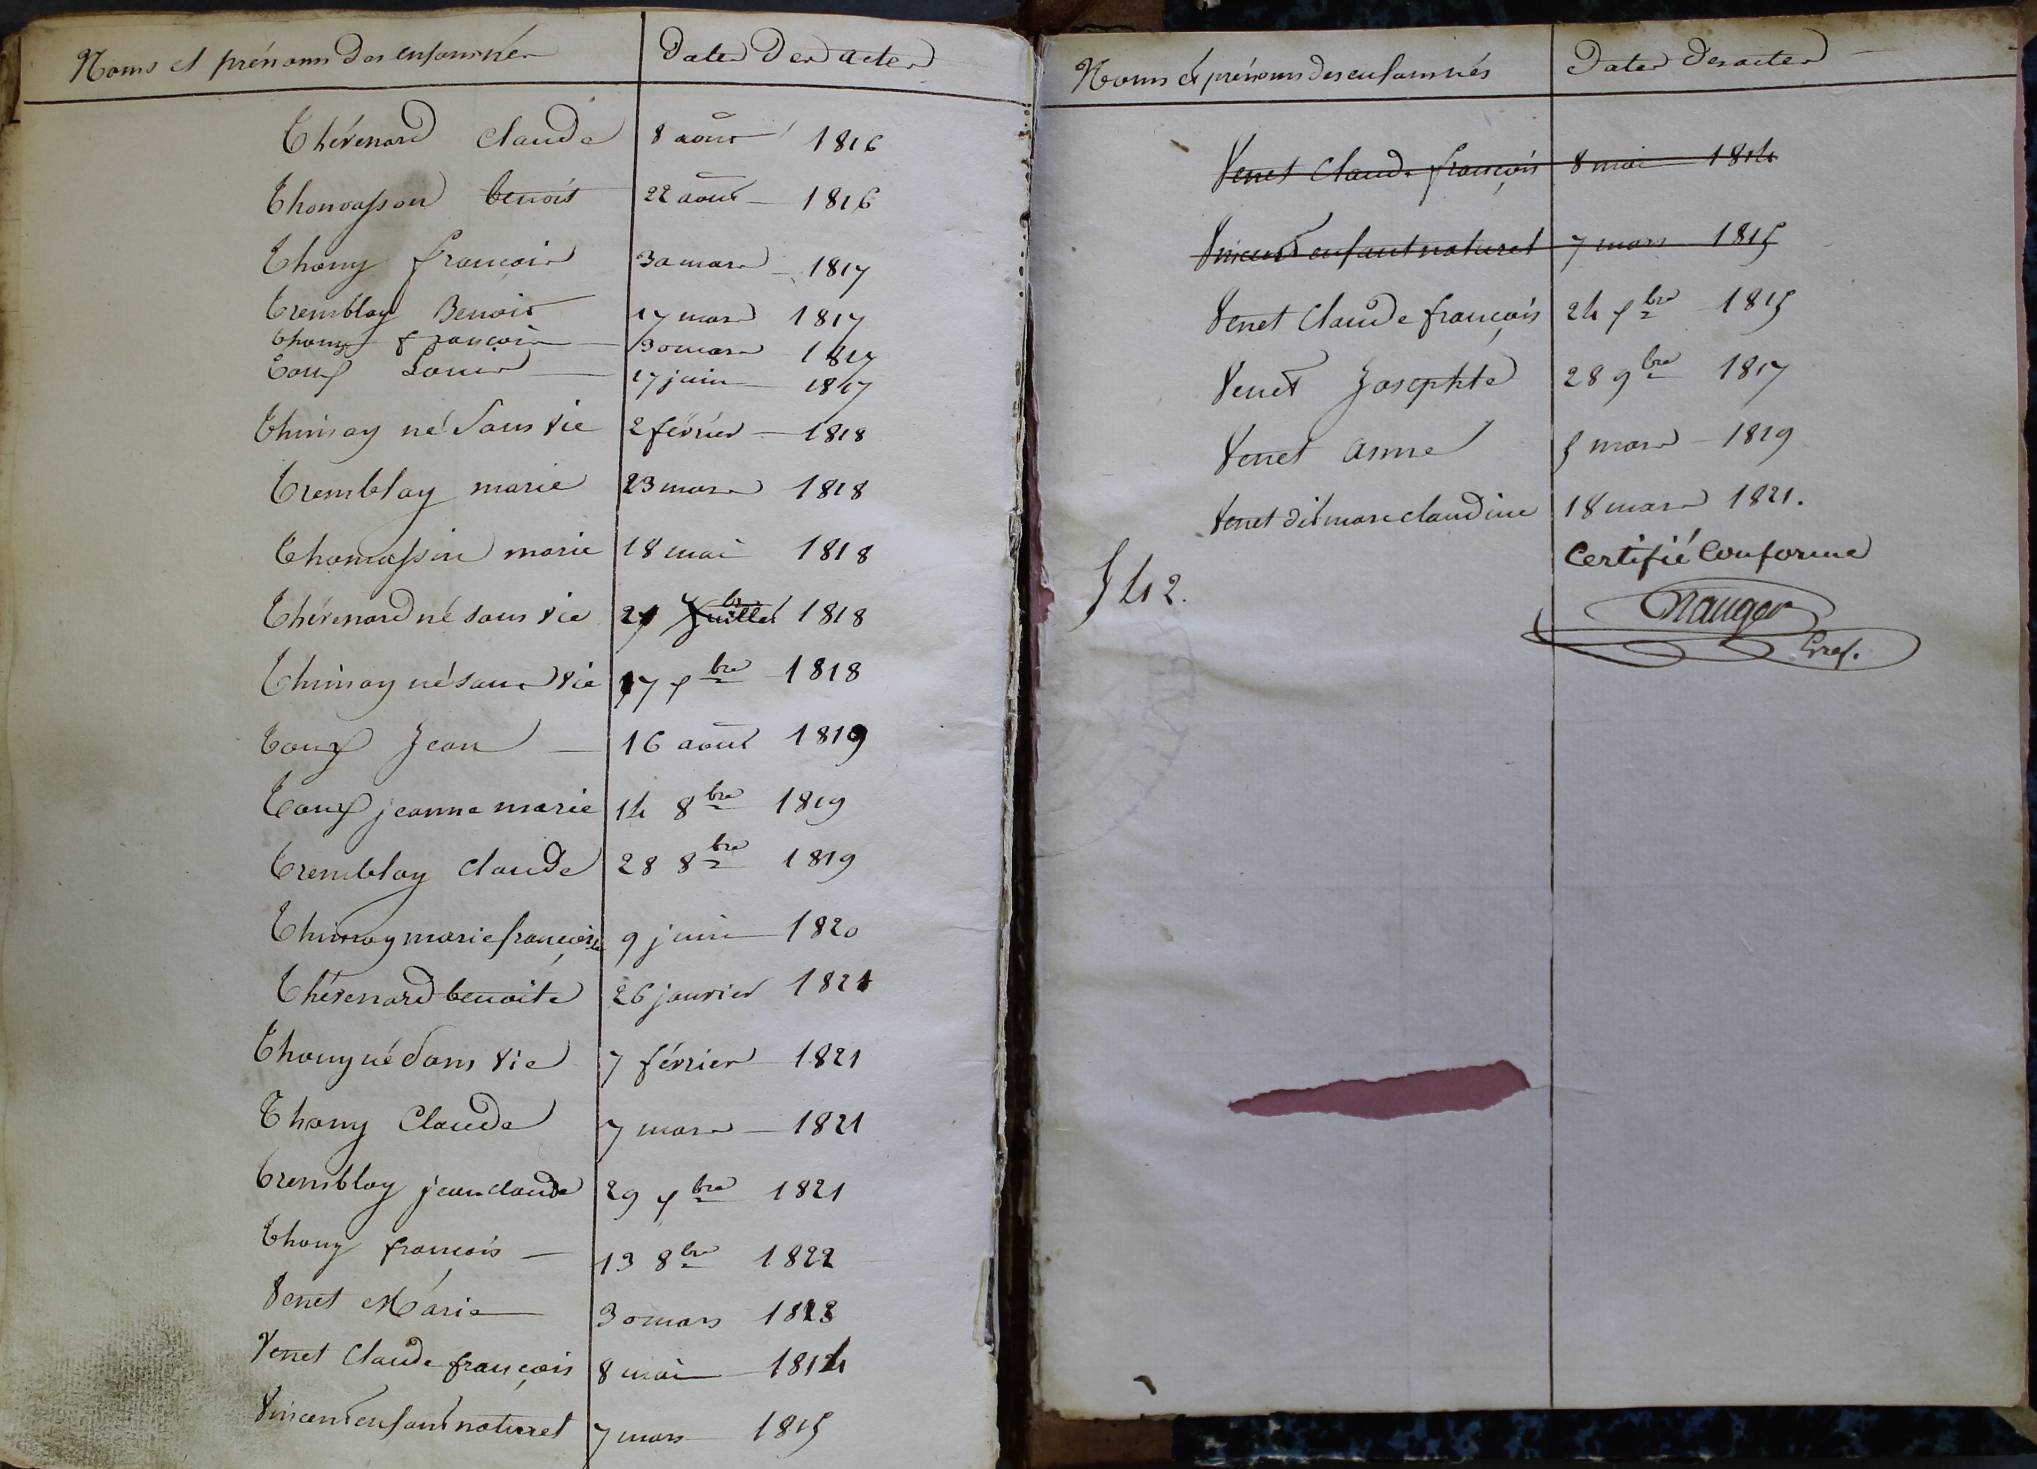 Noms et prénoms des enfans nés Dates Des actes
Thévenard Claude 8 août 1816
Thomasson benoit 22 août 1816
Thomy françois 30 mars 1817
Tremblay Benoit 17 mars 1817
thomy françois 30 mars 1817
Toux Louis 17 juin 1817
Thimoy né Sans vie 2 février 1818
Tremblay marie 23 mars 1818
Thomassin marie 18 mai 1818
Thévenard né sans vie 1818
Thimoy né sans vie 17 7bre 1818
Toux Jean 16 août 1819
Toux jeanne marie 14 8bre 1819
Tremblay claude 28 8bre 1819
Thimoy marie françoise 9 juin 1820
Thévenard benoite 26 janvier 1821
Thomy né Sans vie 7 février 1821
Thomy Claude 7 mars 1821
Tremblay jean claude 29 7bre 1821
Thomy françois 13 8bre 1822
Venet Marie 30 mars 1813
Venet Claude françois 8 mai 1814
Vincent enfant naturel 7 mars 1815
Noms et prénoms des enfans nés Dates Des actes
Venet Claude françois 8 mai 1814
Vincent enfant naturel 7 mars 1815
Venet Claude françois 24 7bre 1815
Venet Josephte 28 9bre 1817
Venet anne 5 mars 1819
Venet dit mare claudine 18 mars 1821.
Certifié Conforme
542.
Mauger
Gref.